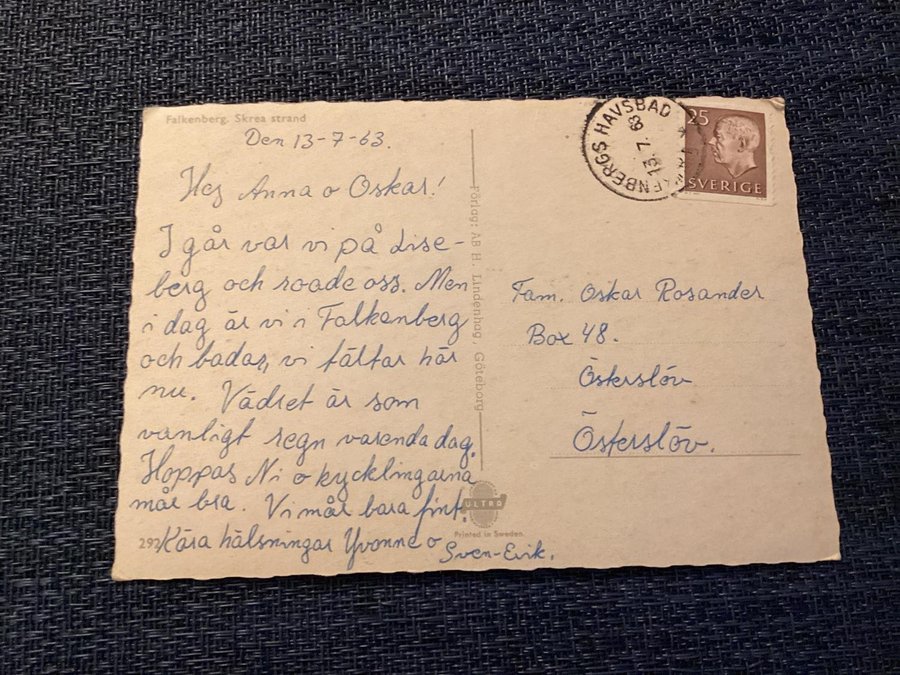 Falkenberg. Skrea strand
Den 13-7-63.
Hej Anna o Oskar!
I går var vi på Lise-
berg och roade oss. Men
i dag är vi i Falkenberg
och badar, vi tältar här
nu. Vädret är som
vanligt regn varenda dag.
Hoppas Ni o kycklingarna
mår bra. Vi mår bara fint.
Kära hälsningar Yvonne o Sven-Erik.
292
Förlag: AB H. Lindenhag, Göteborg
ULTRA
Printed in Sweden.
FALKENBERGS HAVSBAD
13.7.63
25
SVERIGE
Fam. Oskar Rosander
Box 48.
Österslöv
Österslöv.